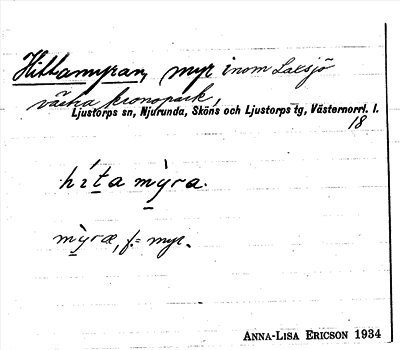 Hittamyran, myr inom Laxsjö
västra kronopark,
Ljustorps sn, Njurunda, Sköns och Ljustorps tg, Västernorrl. l.
18
hi´ta mỳra.
mỳræ, f.= myr.
ANNA-LISA ERICSON 1934